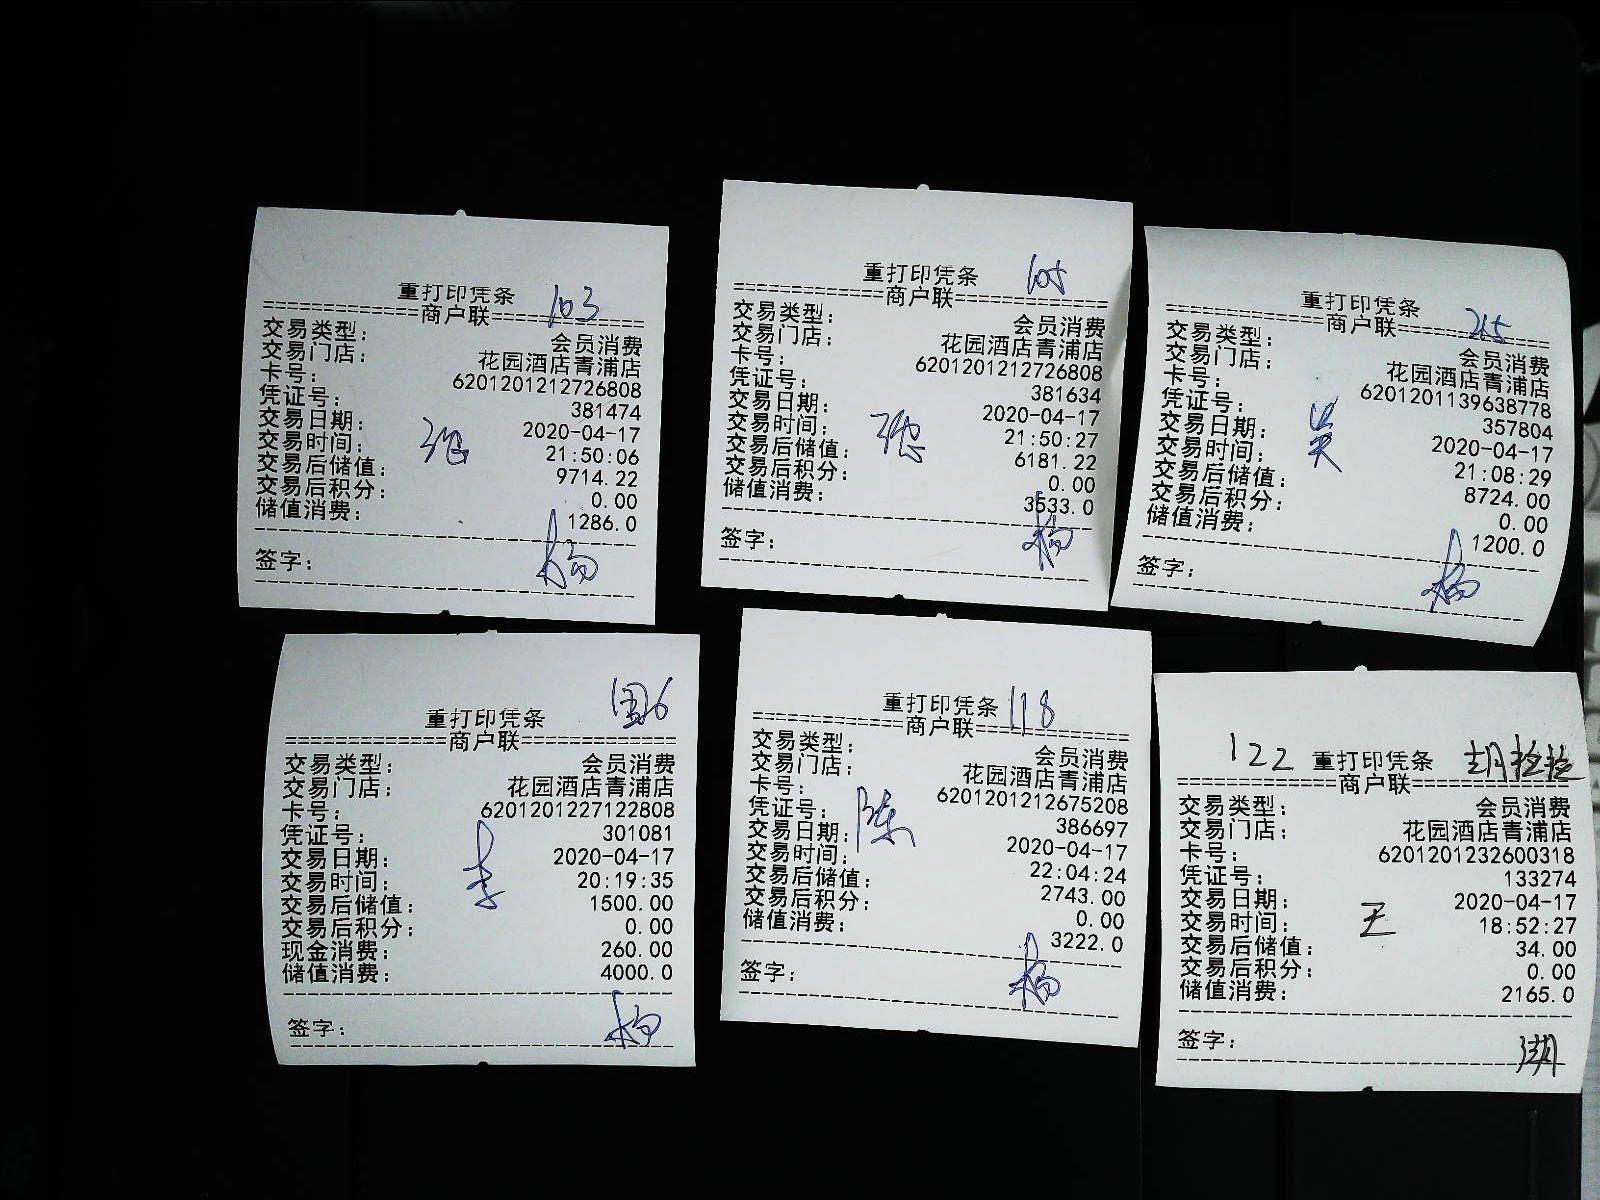 重打印凭条 103
============商户联============
交易类型: 会员消费
交易门店: 花园酒店青浦店
卡号: 6201201212726808
凭证号: 381474
交易日期: 2020-04-17
交易时间: 21:50:06
交易后储值: 9714.22
交易后积分: 0.00
储值消费: 1286.0
张
签字: 杨
重打印凭条 105
============商户联============
交易类型: 会员消费
交易门店: 花园酒店青浦店
卡号: 6201201212726808
凭证号: 381634
交易日期: 2020-04-17
交易时间: 21:50:27
交易后储值: 6181.22
交易后积分: 0.00
储值消费: 3533.0
张
签字: 杨
重打印凭条 265
============商户联============
交易类型: 会员消费
交易门店: 花园酒店青浦店
卡号: 6201201139638778
凭证号: 357804
交易日期: 2020-04-17
交易时间: 21:08:29
交易后储值: 8724.00
交易后积分: 0.00
储值消费: 1200.0
吴
签字: 杨
重打印凭条
============商户联============
交易类型: 会员消费
交易门店: 花园酒店青浦店
卡号: 6201201227122808
凭证号: 301081
交易日期: 2020-04-17
交易时间: 20:19:35
交易后储值: 1500.00
交易后积分: 0.00
现金消费: 260.00
储值消费: 4000.0
李
签字: 杨
重打印凭条 118
============商户联============
交易类型: 会员消费
交易门店: 花园酒店青浦店
卡号: 6201201212675208
凭证号: 386697
交易日期: 2020-04-17
交易时间: 22:04:24
交易后储值: 2743.00
交易后积分: 0.00
储值消费: 3222.0
陈
签字: 杨
122 重打印凭条
============商户联============
交易类型: 会员消费
交易门店: 花园酒店青浦店
卡号: 6201201232600318
凭证号: 133274
交易日期: 2020-04-17
交易时间: 18:52:27
交易后储值: 34.00
交易后积分: 0.00
储值消费: 2165.0
王
签字: